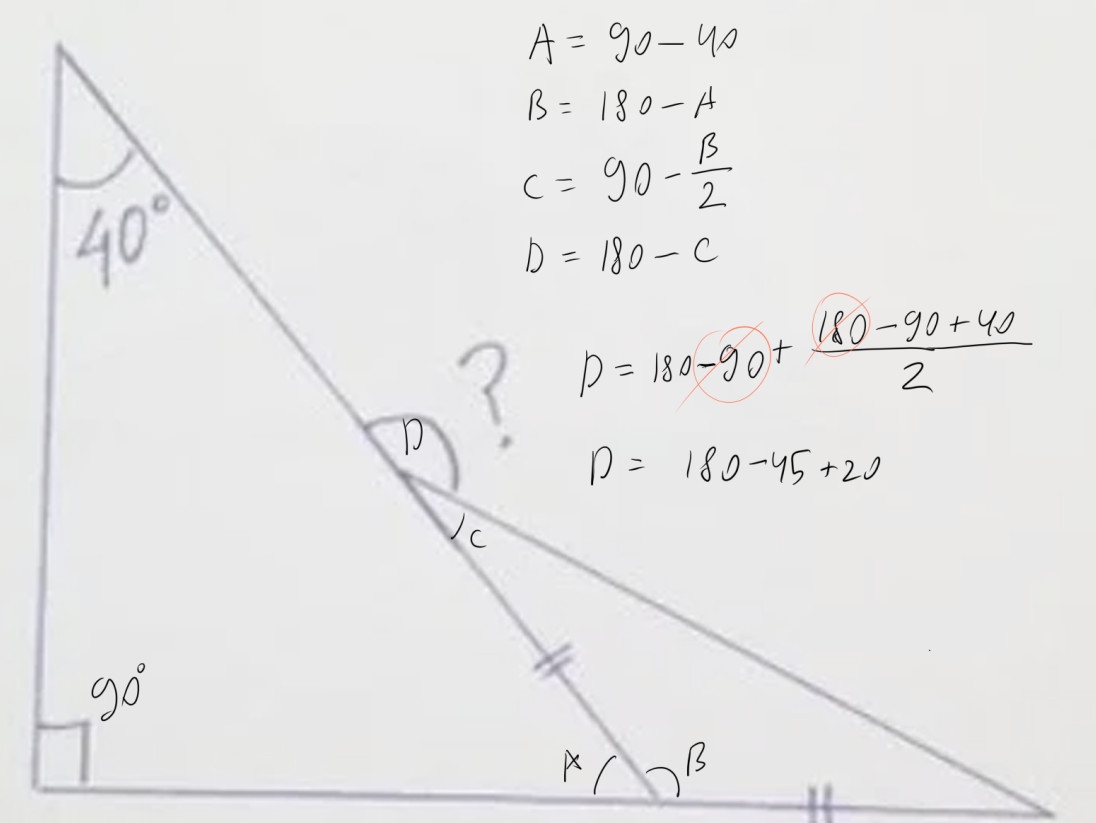 A = 90 - 40
B = 180 - A
C = 90 - B/2
D = 180 - C
40°
D = 180 - 90 + (180 - 90 + 40)/2
?
D
D = 180 - 45 + 20
C
90°
A
B